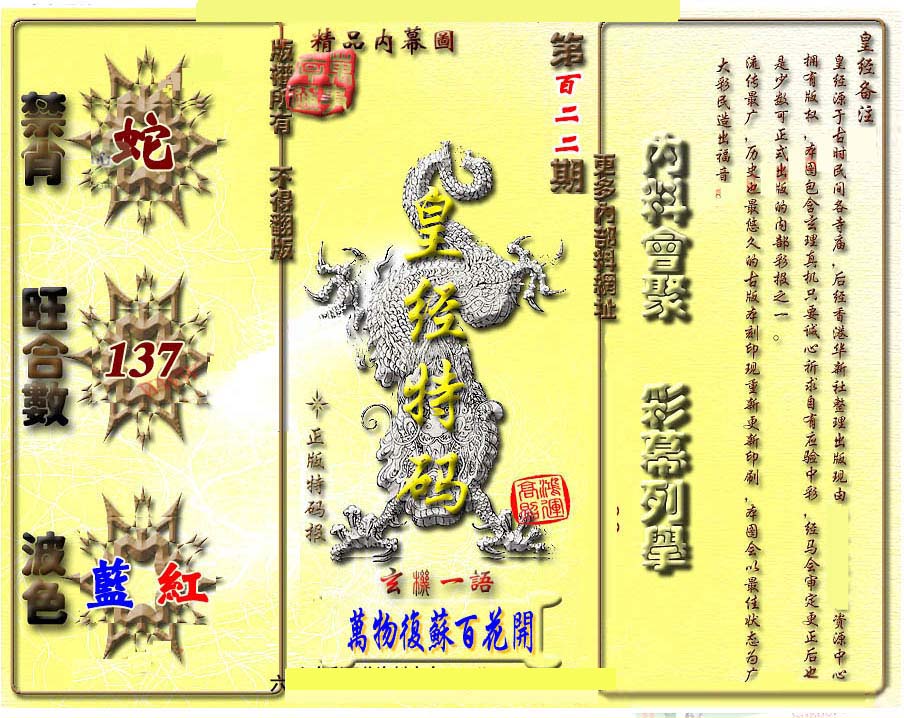 皇经备注
皇经源于古时民间各寺庙,后经香港华新社整理出版现由 资源中心
拥有版权,本图包含玄理真机只要诚心祈求自有应验中彩,经马会审定更正后也
是少数可正式出版的内部彩报之一。
流传最广,历史也最悠久的古版本刻印现重新更新印刷,本图会以最佳状态为广
大彩民造出福音
內料會聚 彩幕列舉
更多内部料網址
第百二二期
精品内幕圖
皇经特码
正版特码报
鴻運高照
玄機一語
萬物復蘇百花開
版權所有 不得翻版
禁肖
蛇
旺合數
137
波色
藍 紅
六